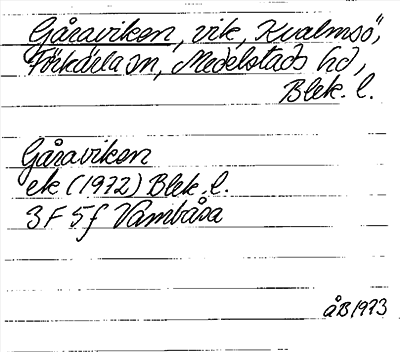 Gåraviken, vik, Kvalmsö,
Förkärla sn, Medelstads hd,
Blek. l.
Gåraviken
ek (1972) Blek. l.
3F 5f Vambåsa
åB 1973